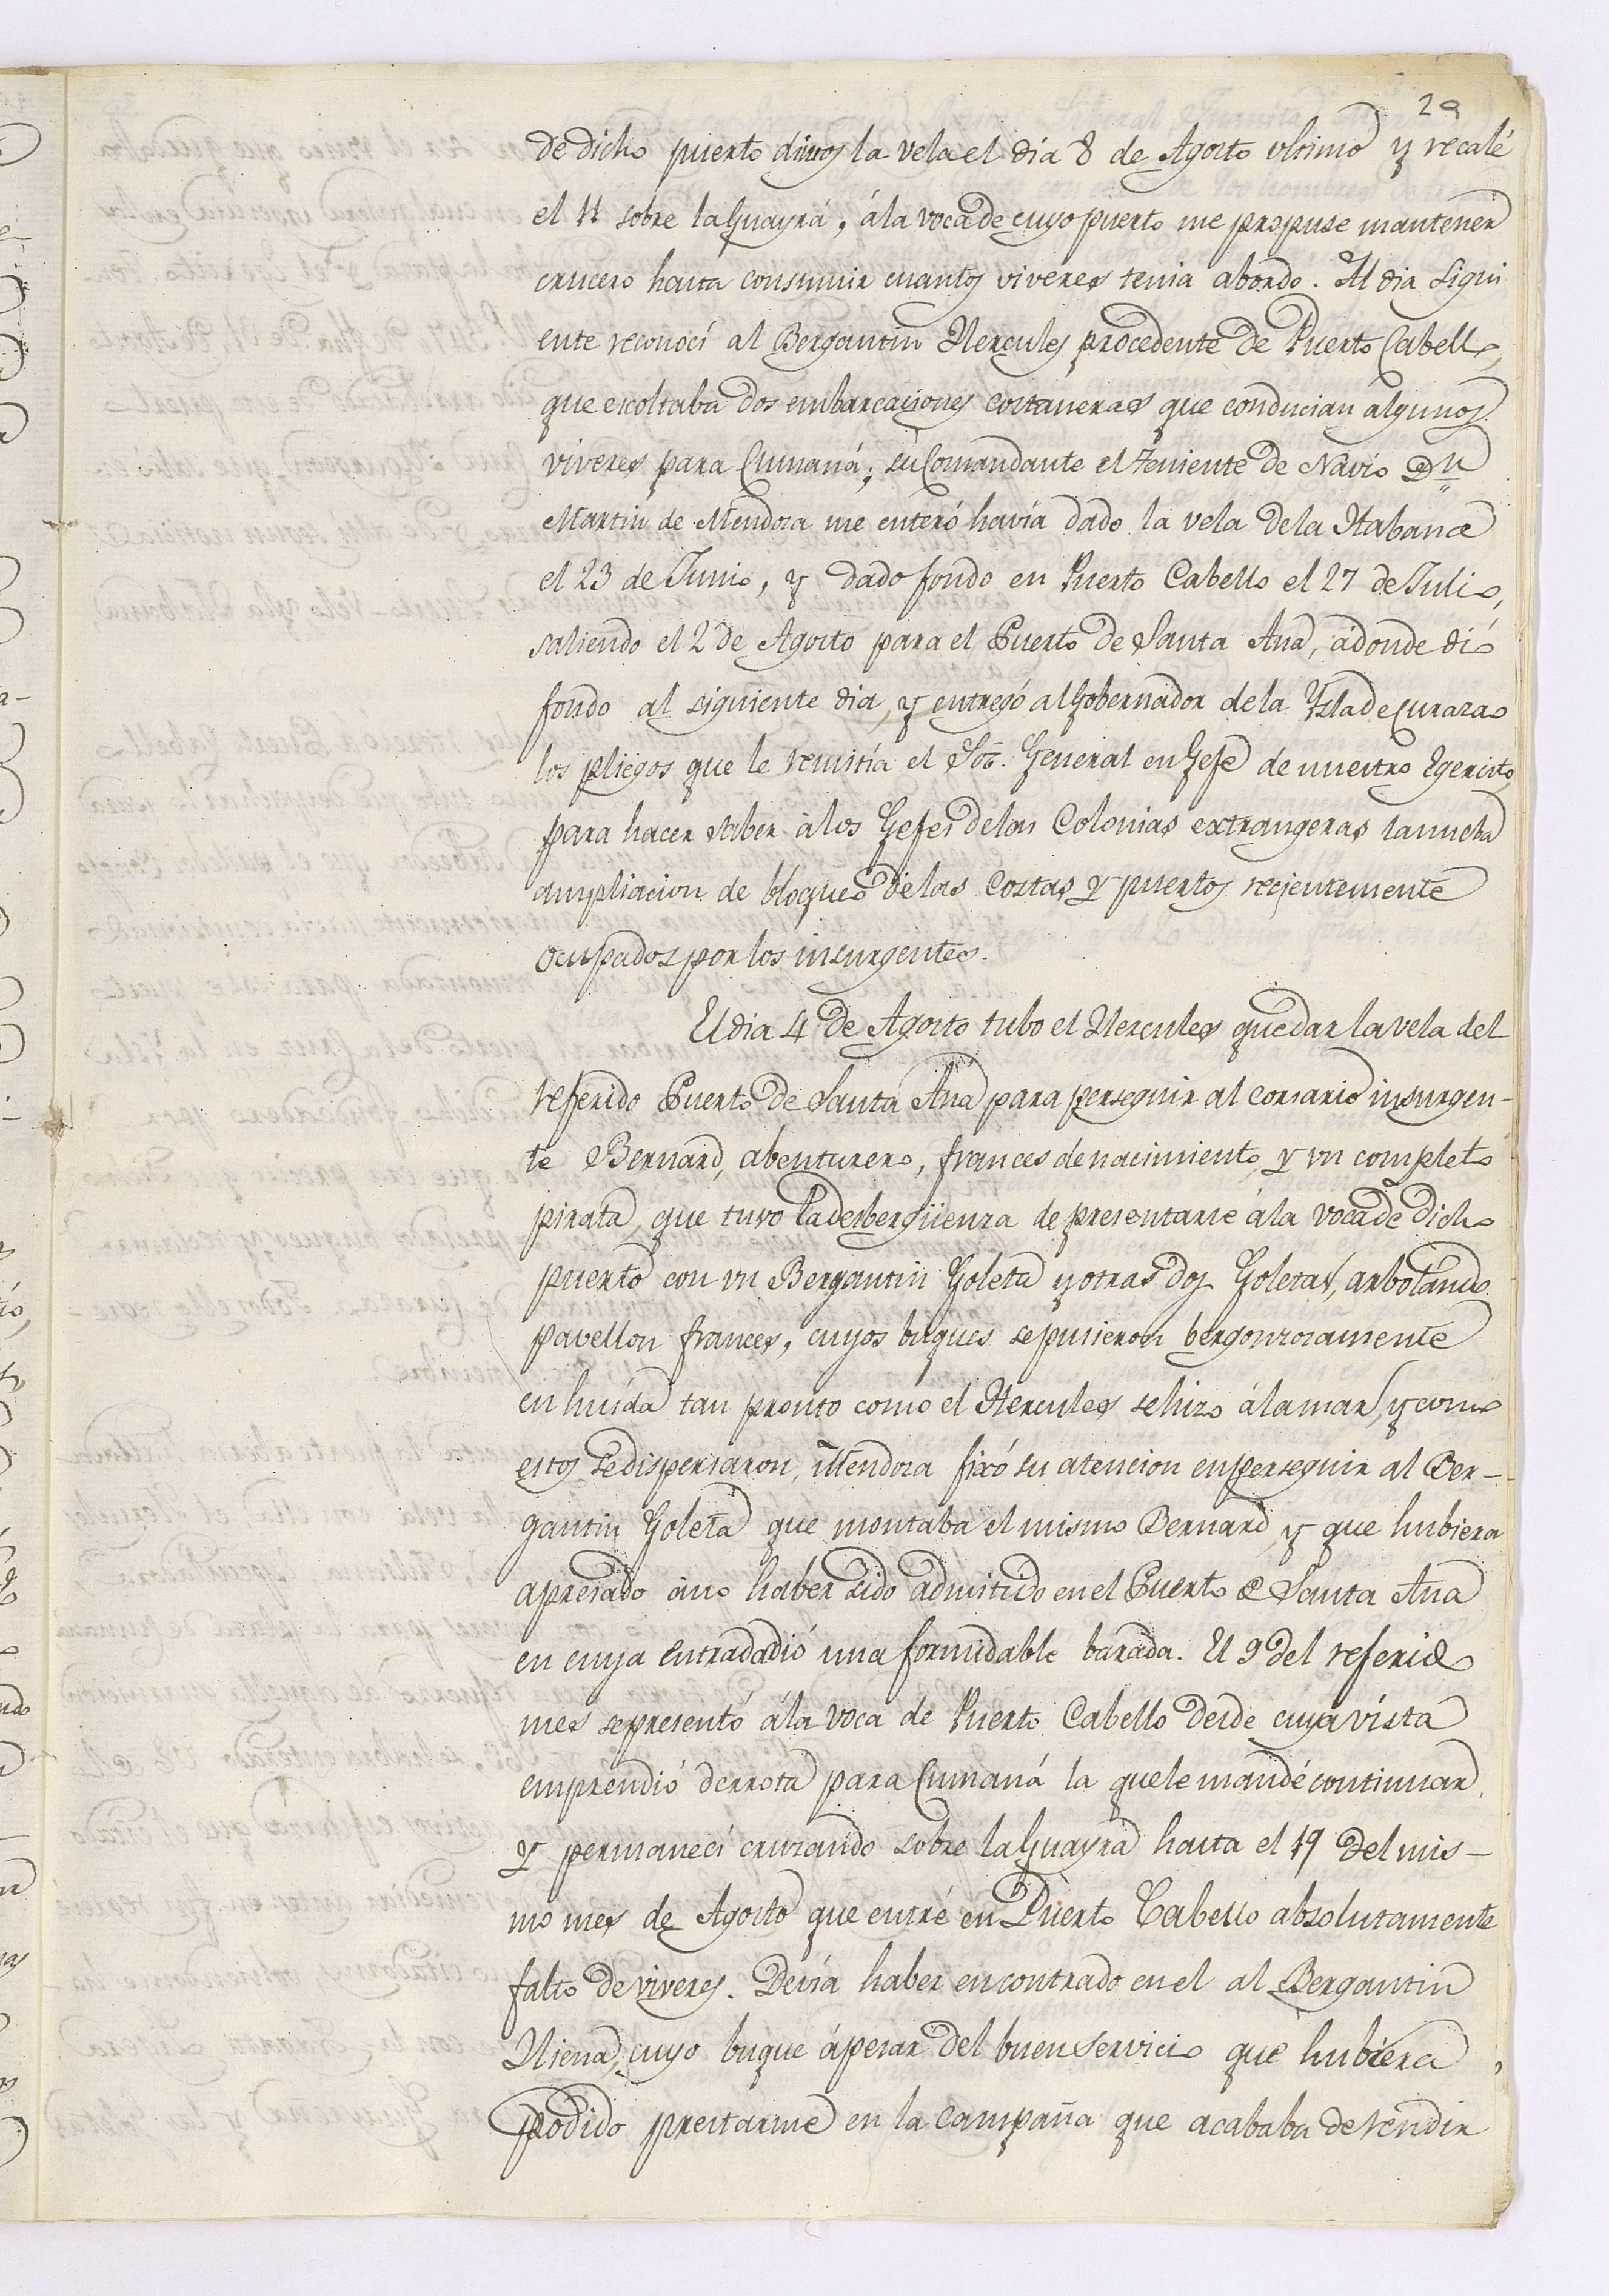 29
de dicho puerto dimos la vela el dia 8 de Agosto ultimo y recalé
el 11 sobre la Guayrá, á la voca de cuyo puerto me propuse mantener
crucero hasta consumir cuantos viveres tenia abordo. Al dia sigui
ente reconocí al Bergantin Hercules procedente de Puerto Cabello,
que escoltaba dos embarcaciones costaneras que conducian algunos
viveres para Cumaná; su Comandante el Teniente de Navio Dn
Martin de Mendoza me enteró havía dado la vela de la Habana
el 23 de Junio, y dado fondo en Puerto Cabello el 27 de Julio,
saliendo el 2 de Agosto para el Puerto de Santa Ana, adonde dió
fondo al siguiente dia, y entregó al Gobernador de la Ysla de Curazao
los pliegos que le remitía el Sor. General en Gefe de nuestro Egercito,
para hacer saber á los Gefes de las Colonias extrangeras la nueba
ampliacion de bloqueo de las Costas y puertos recientemente
ocupados por los insurgentes.
El dia 4 de Agosto tubo el Hercules que dar la vela del
referido Puerto de Santa Ana para perseguir al corsario insurgen-
te Bernard, abenturero, frances de nacimiento, y un completo
pirata, que tuvo la desbergüenza de presentarse á la voca de dicho
puerto con un Bergantin Goleta y otras dos Goletas, arbolando
pavellon frances, cuyos buques se pusieron bergonzosamente
en huida tan pronto como el Hercules se hizo á la mar, y como
estos se dispersaron, Mendoza fixó su atencion en perseguir al Ber-
gantin Goleta que montaba el mismo Bernard, y que hubiera
apresado á no haber sido admitido en el Puerto de Santa Ana
en cuya entrada dió una formidable barada. El 9 del referido
mes se presentó á la voca de Puerto Cabello desde cuya vista
emprendió derrota para Cumaná la que le mandé continuar,
y permanecí cruzando sobre la Guayra hasta el 19 del mis-
mo mes de Agosto que entré en Puerto Cabello absolutamente
falto de viveres. Devia haber encontrado en el al Bergantin
Hiena, cuyo buque ápesar del buen servicio que hubiera
podido prestarme en la campaña que acababa de rendir